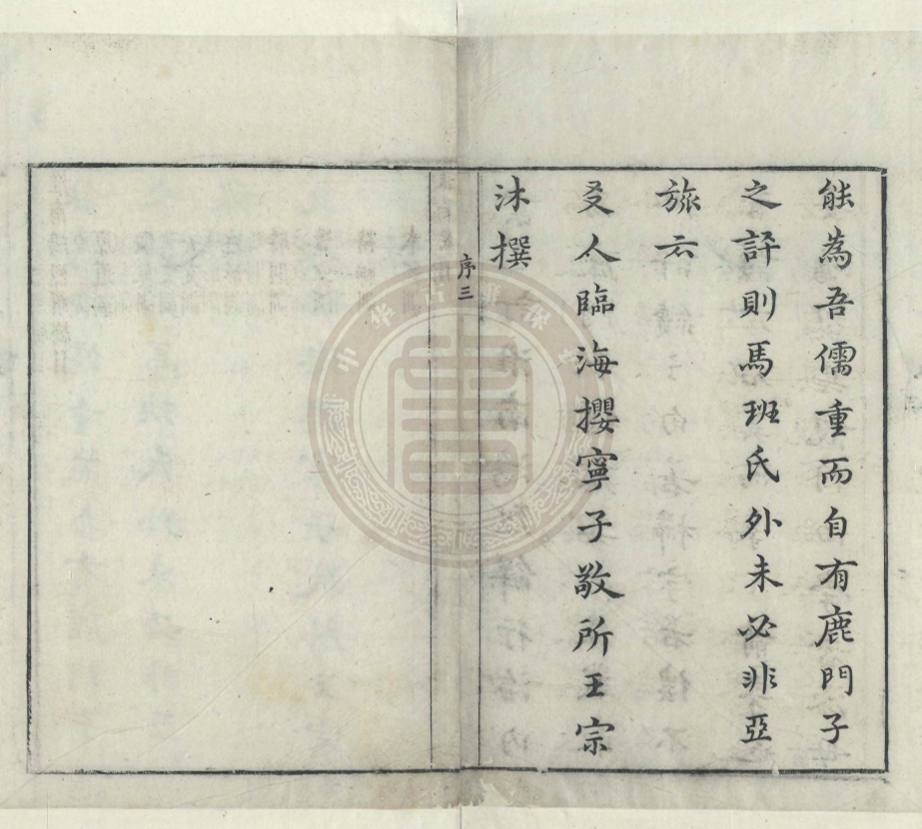 能為吾儒重而自有鹿門子
之評則馬班氏外未必非亞
旅云
友人臨海攖寧子敬所王宗
沐撰
序三